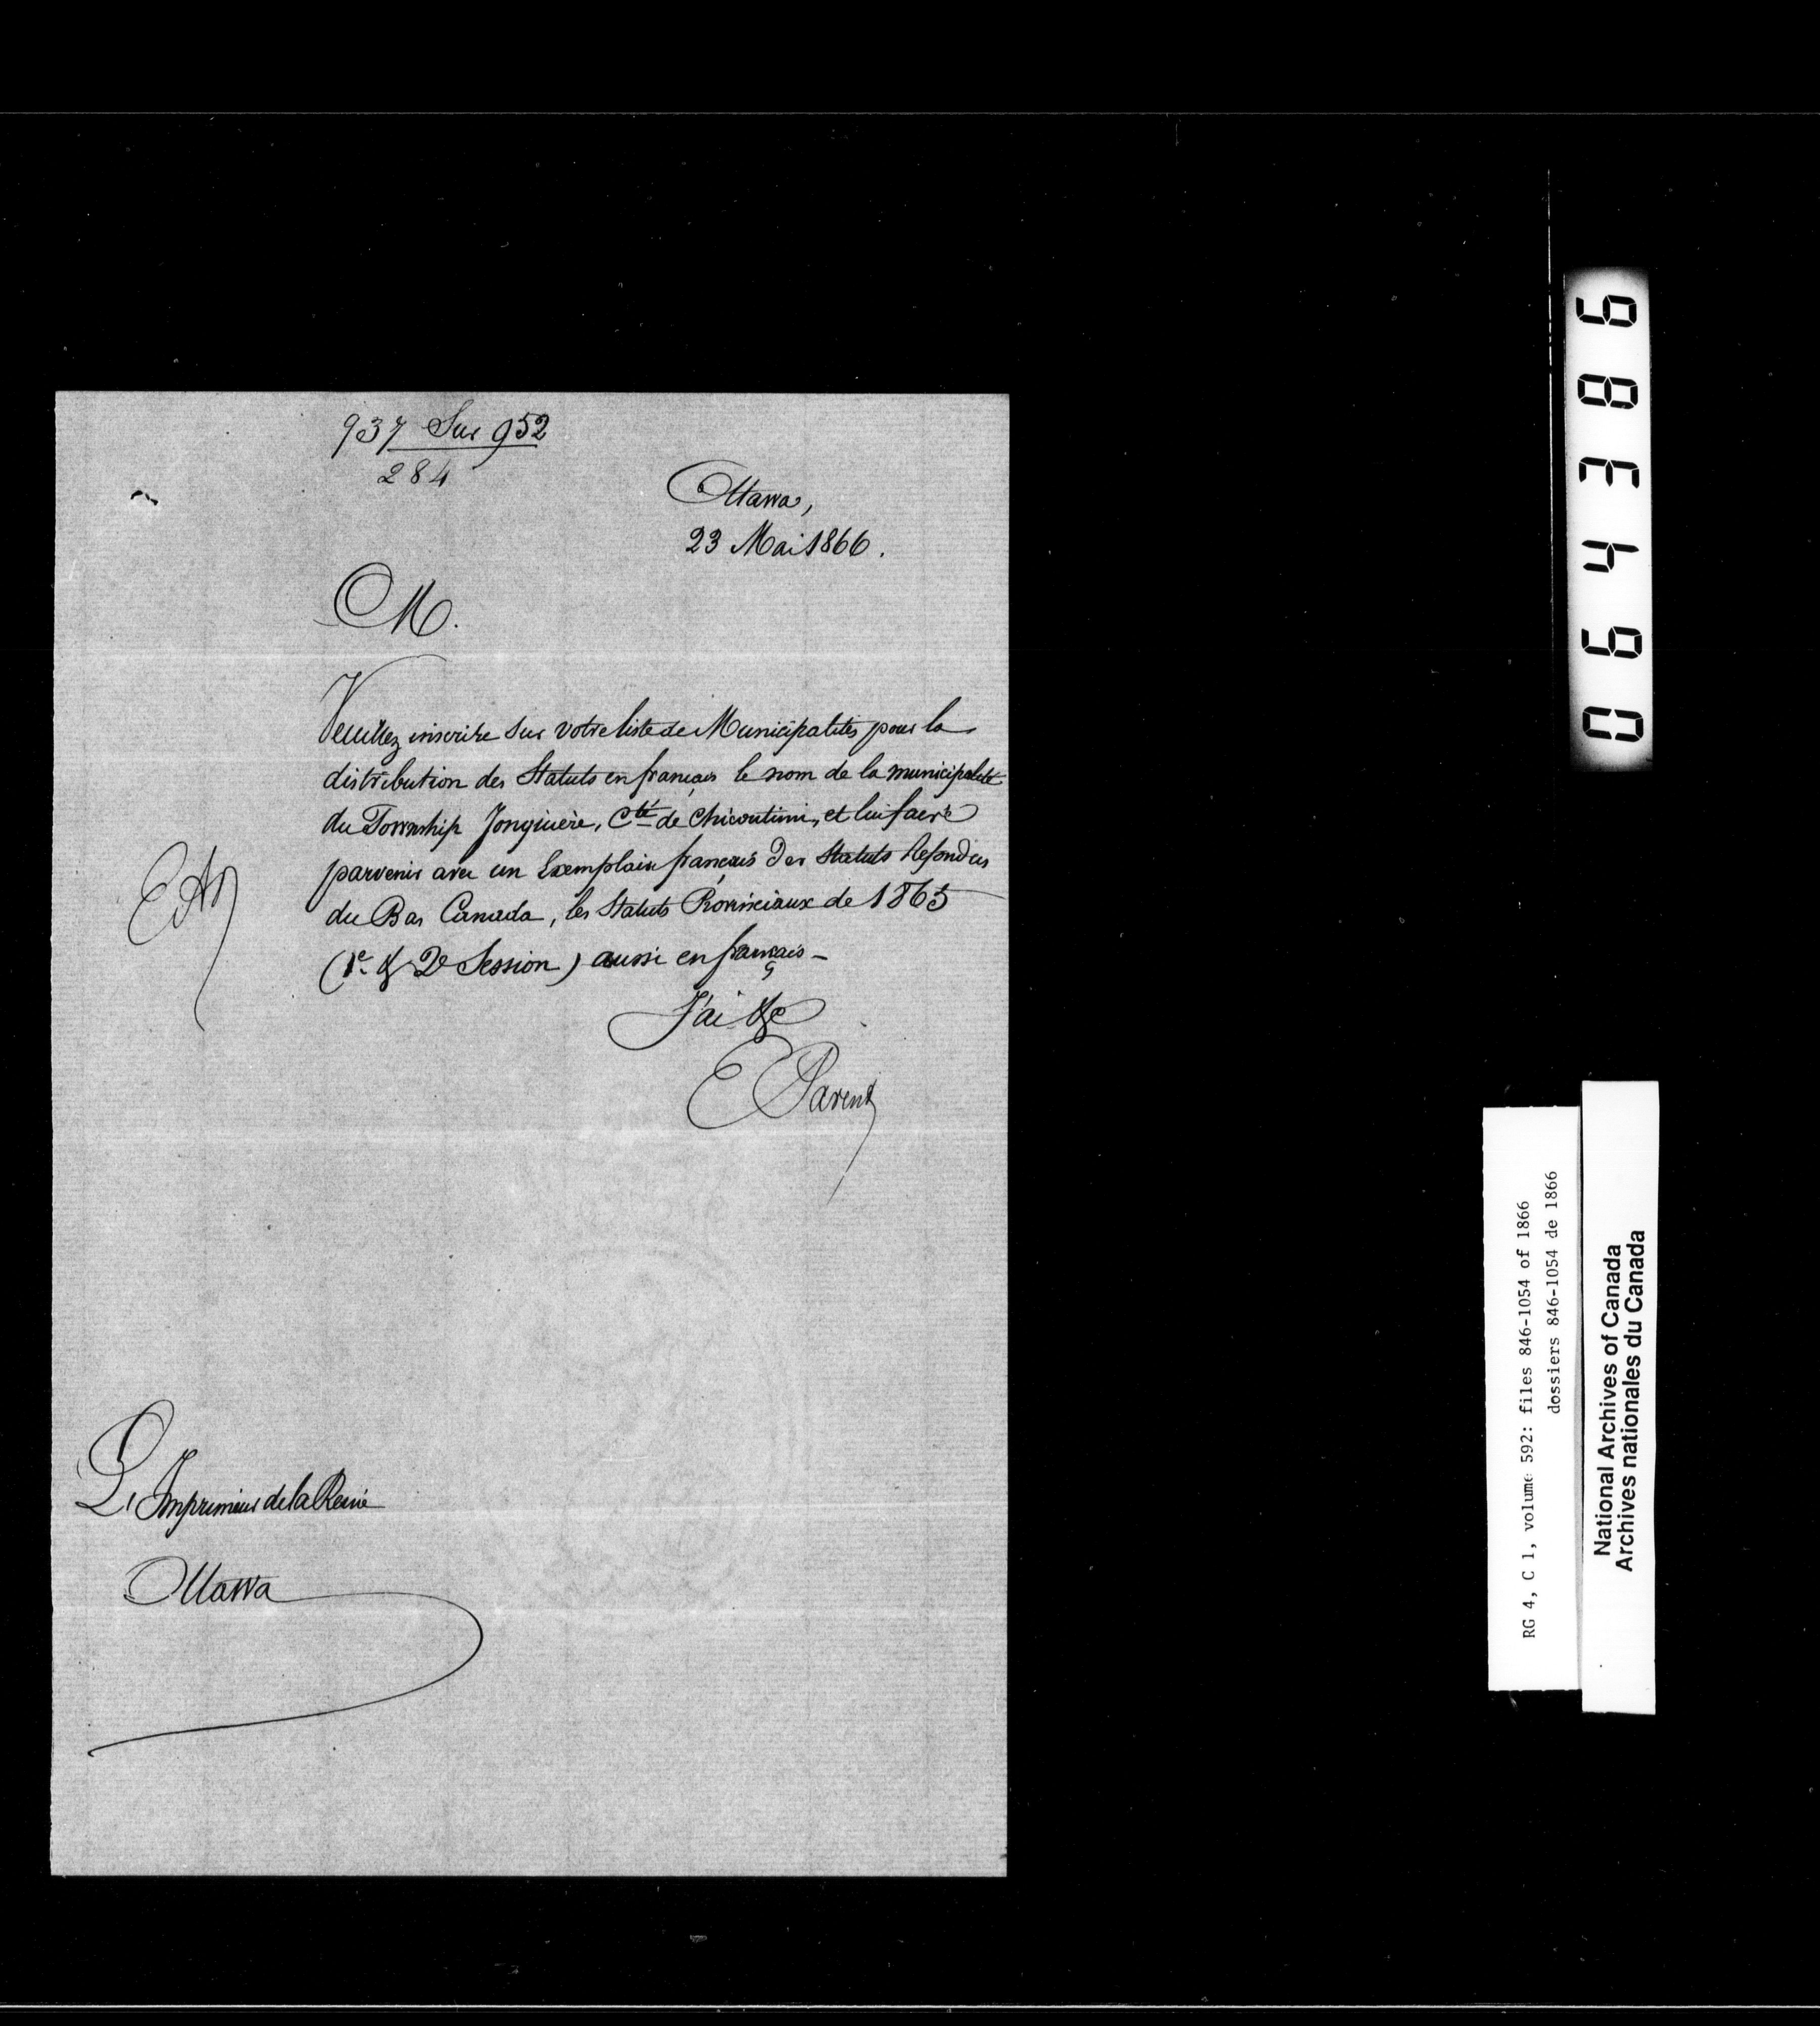 937 Sur 952
284
Ottawa,
23 Mai 1866.
M.
Veuillez inscrire sur votre liste de Municipalités pour la
distribution des Statuts en français le nom de la municipalité
du Township Jonquière, Cté de Chicoutimi, et lui faire
parvenir avec un Exemplaire français des Statuts Refondus
du Bas Canada, les Statuts Provinciaux de 1865
(1e & 2e Session) aussi en français -
J'ai &c
E Parent
L'Imprimeur de la Reine
Ottawa
064386
RG 4, C 1, volume 592: files 846-1054 of 1866
dossiers 846-1054 de 1866
National Archives of Canada
Archives nationales du Canada